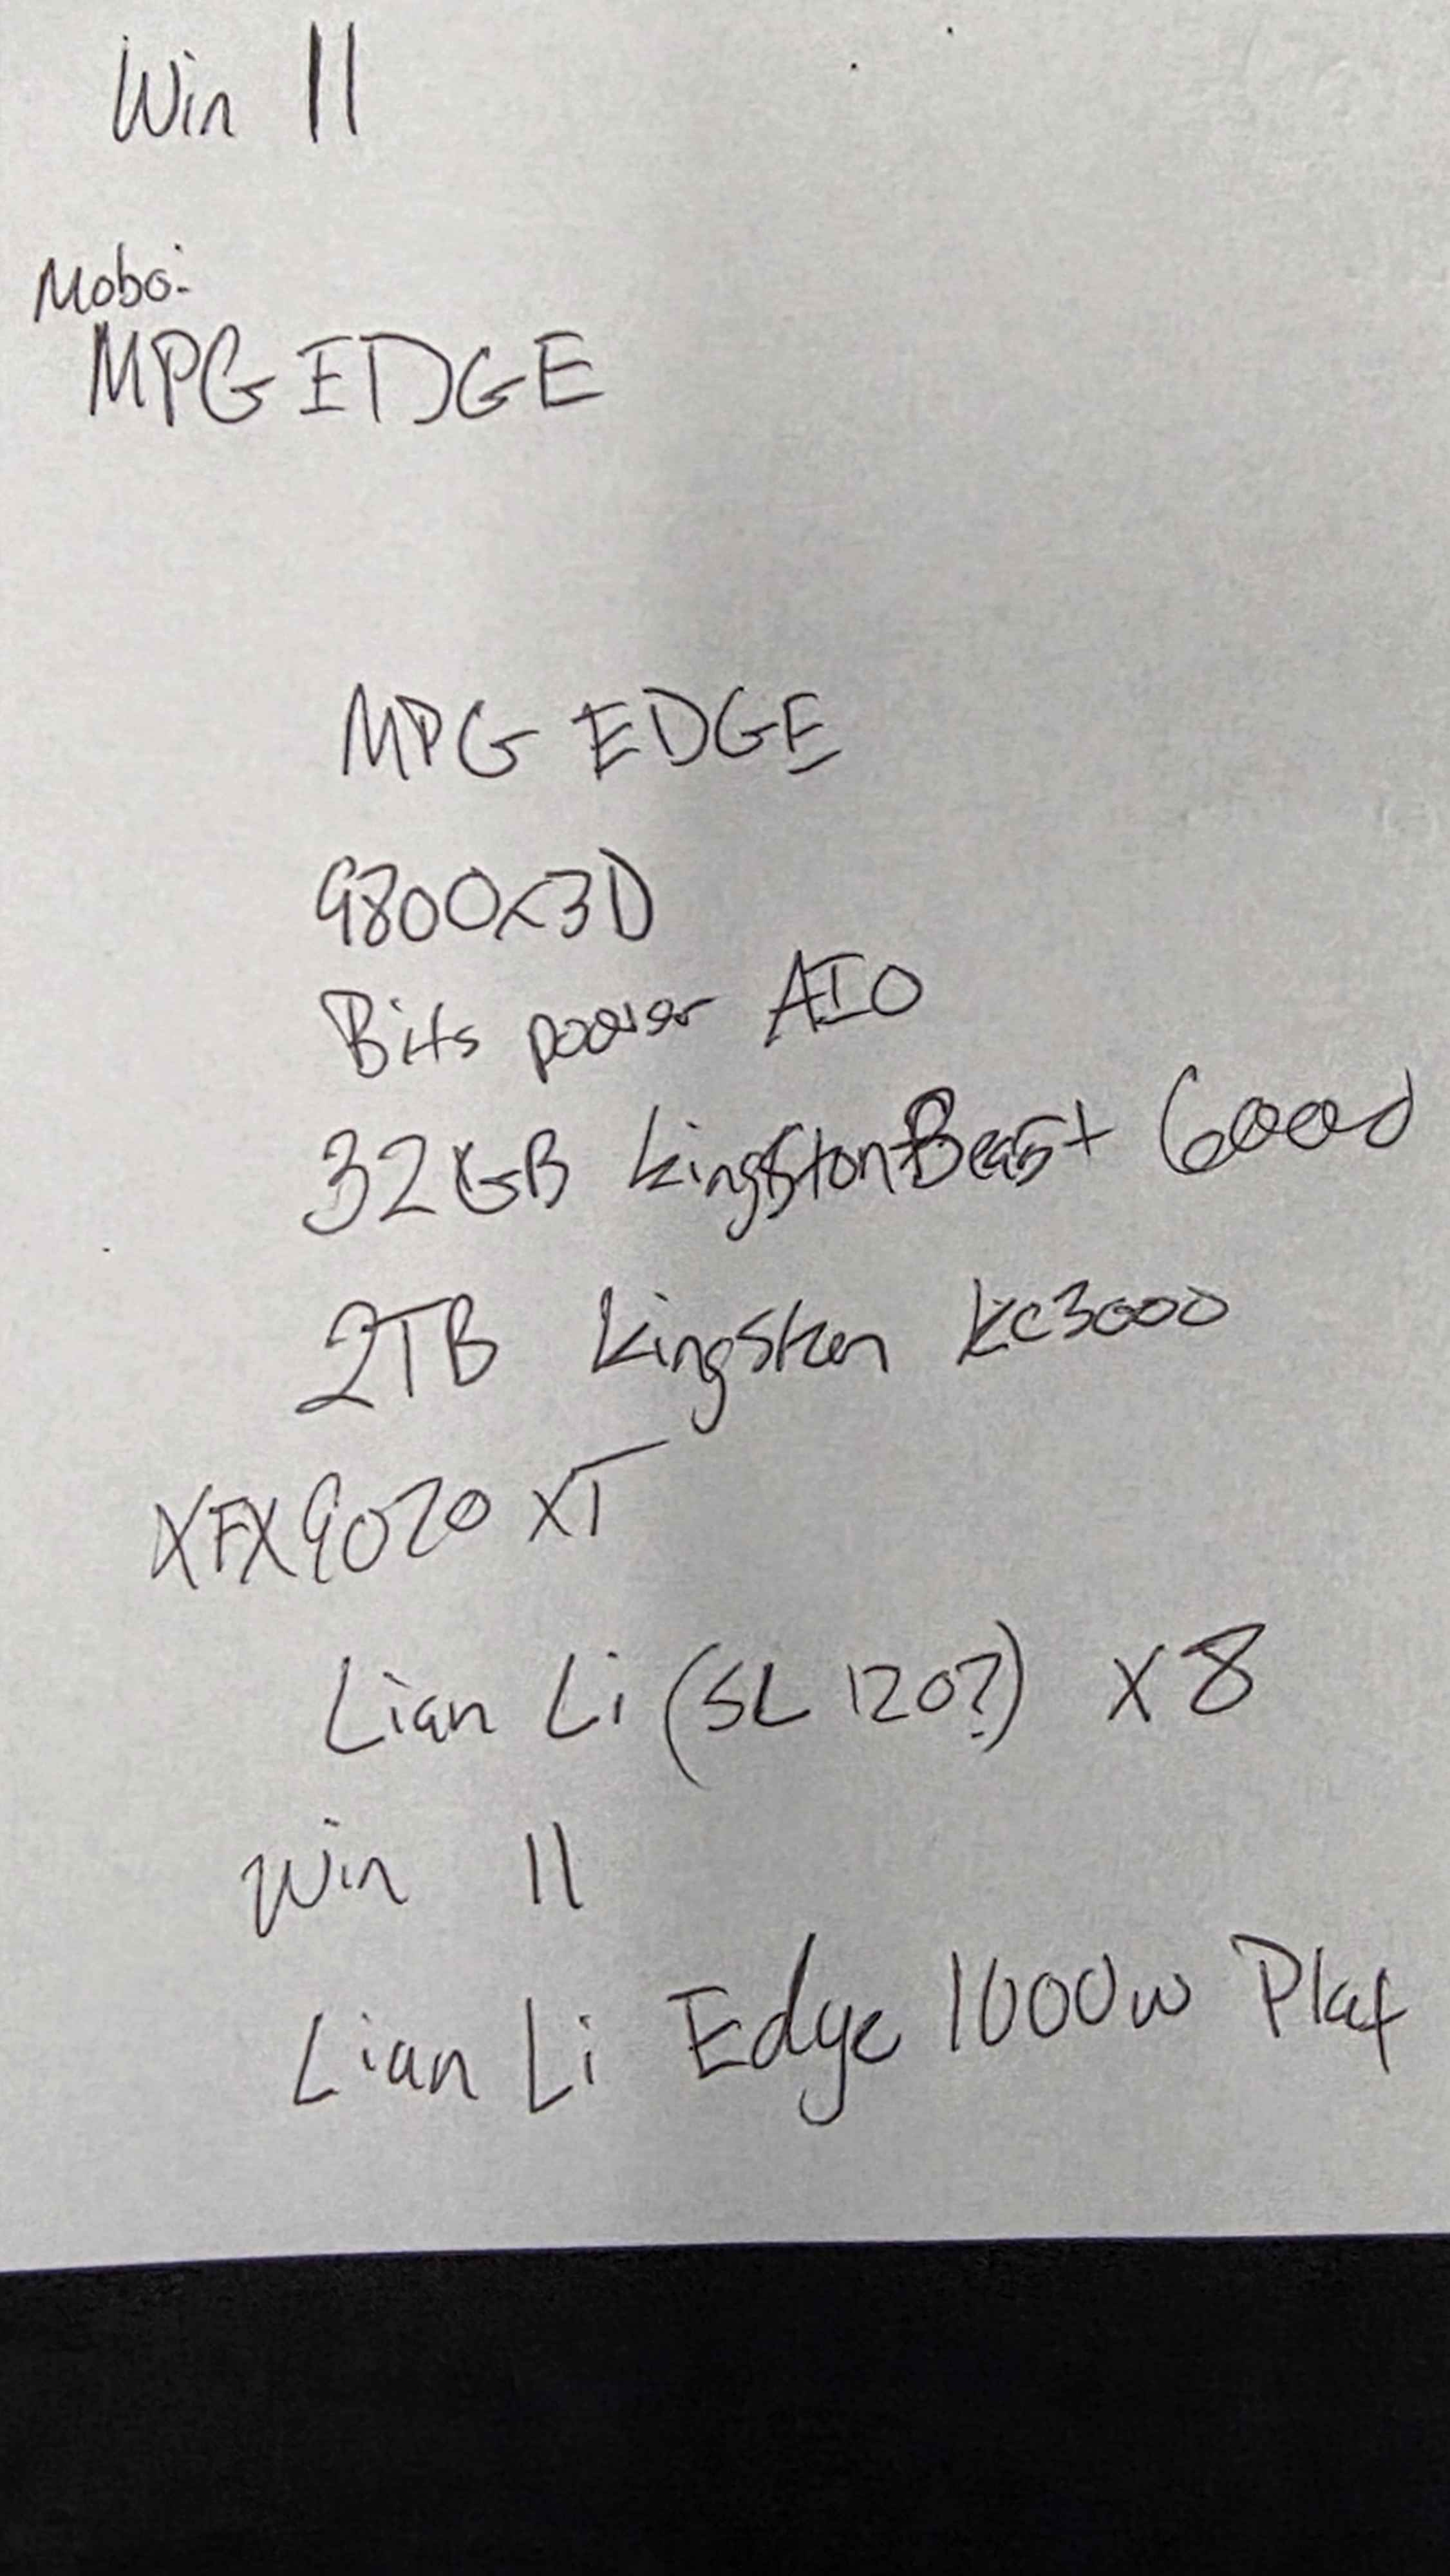 Win 11
Mobo:
MPG EDGE
MPG EDGE
9800x3D
Bits power AIO
32GB Kingston Beast 6000
2TB Kingston KC3000
XFX 9070 XT
Lian Li (SL 120?) x8
Win 11
Lian Li Edge 1000w Plat